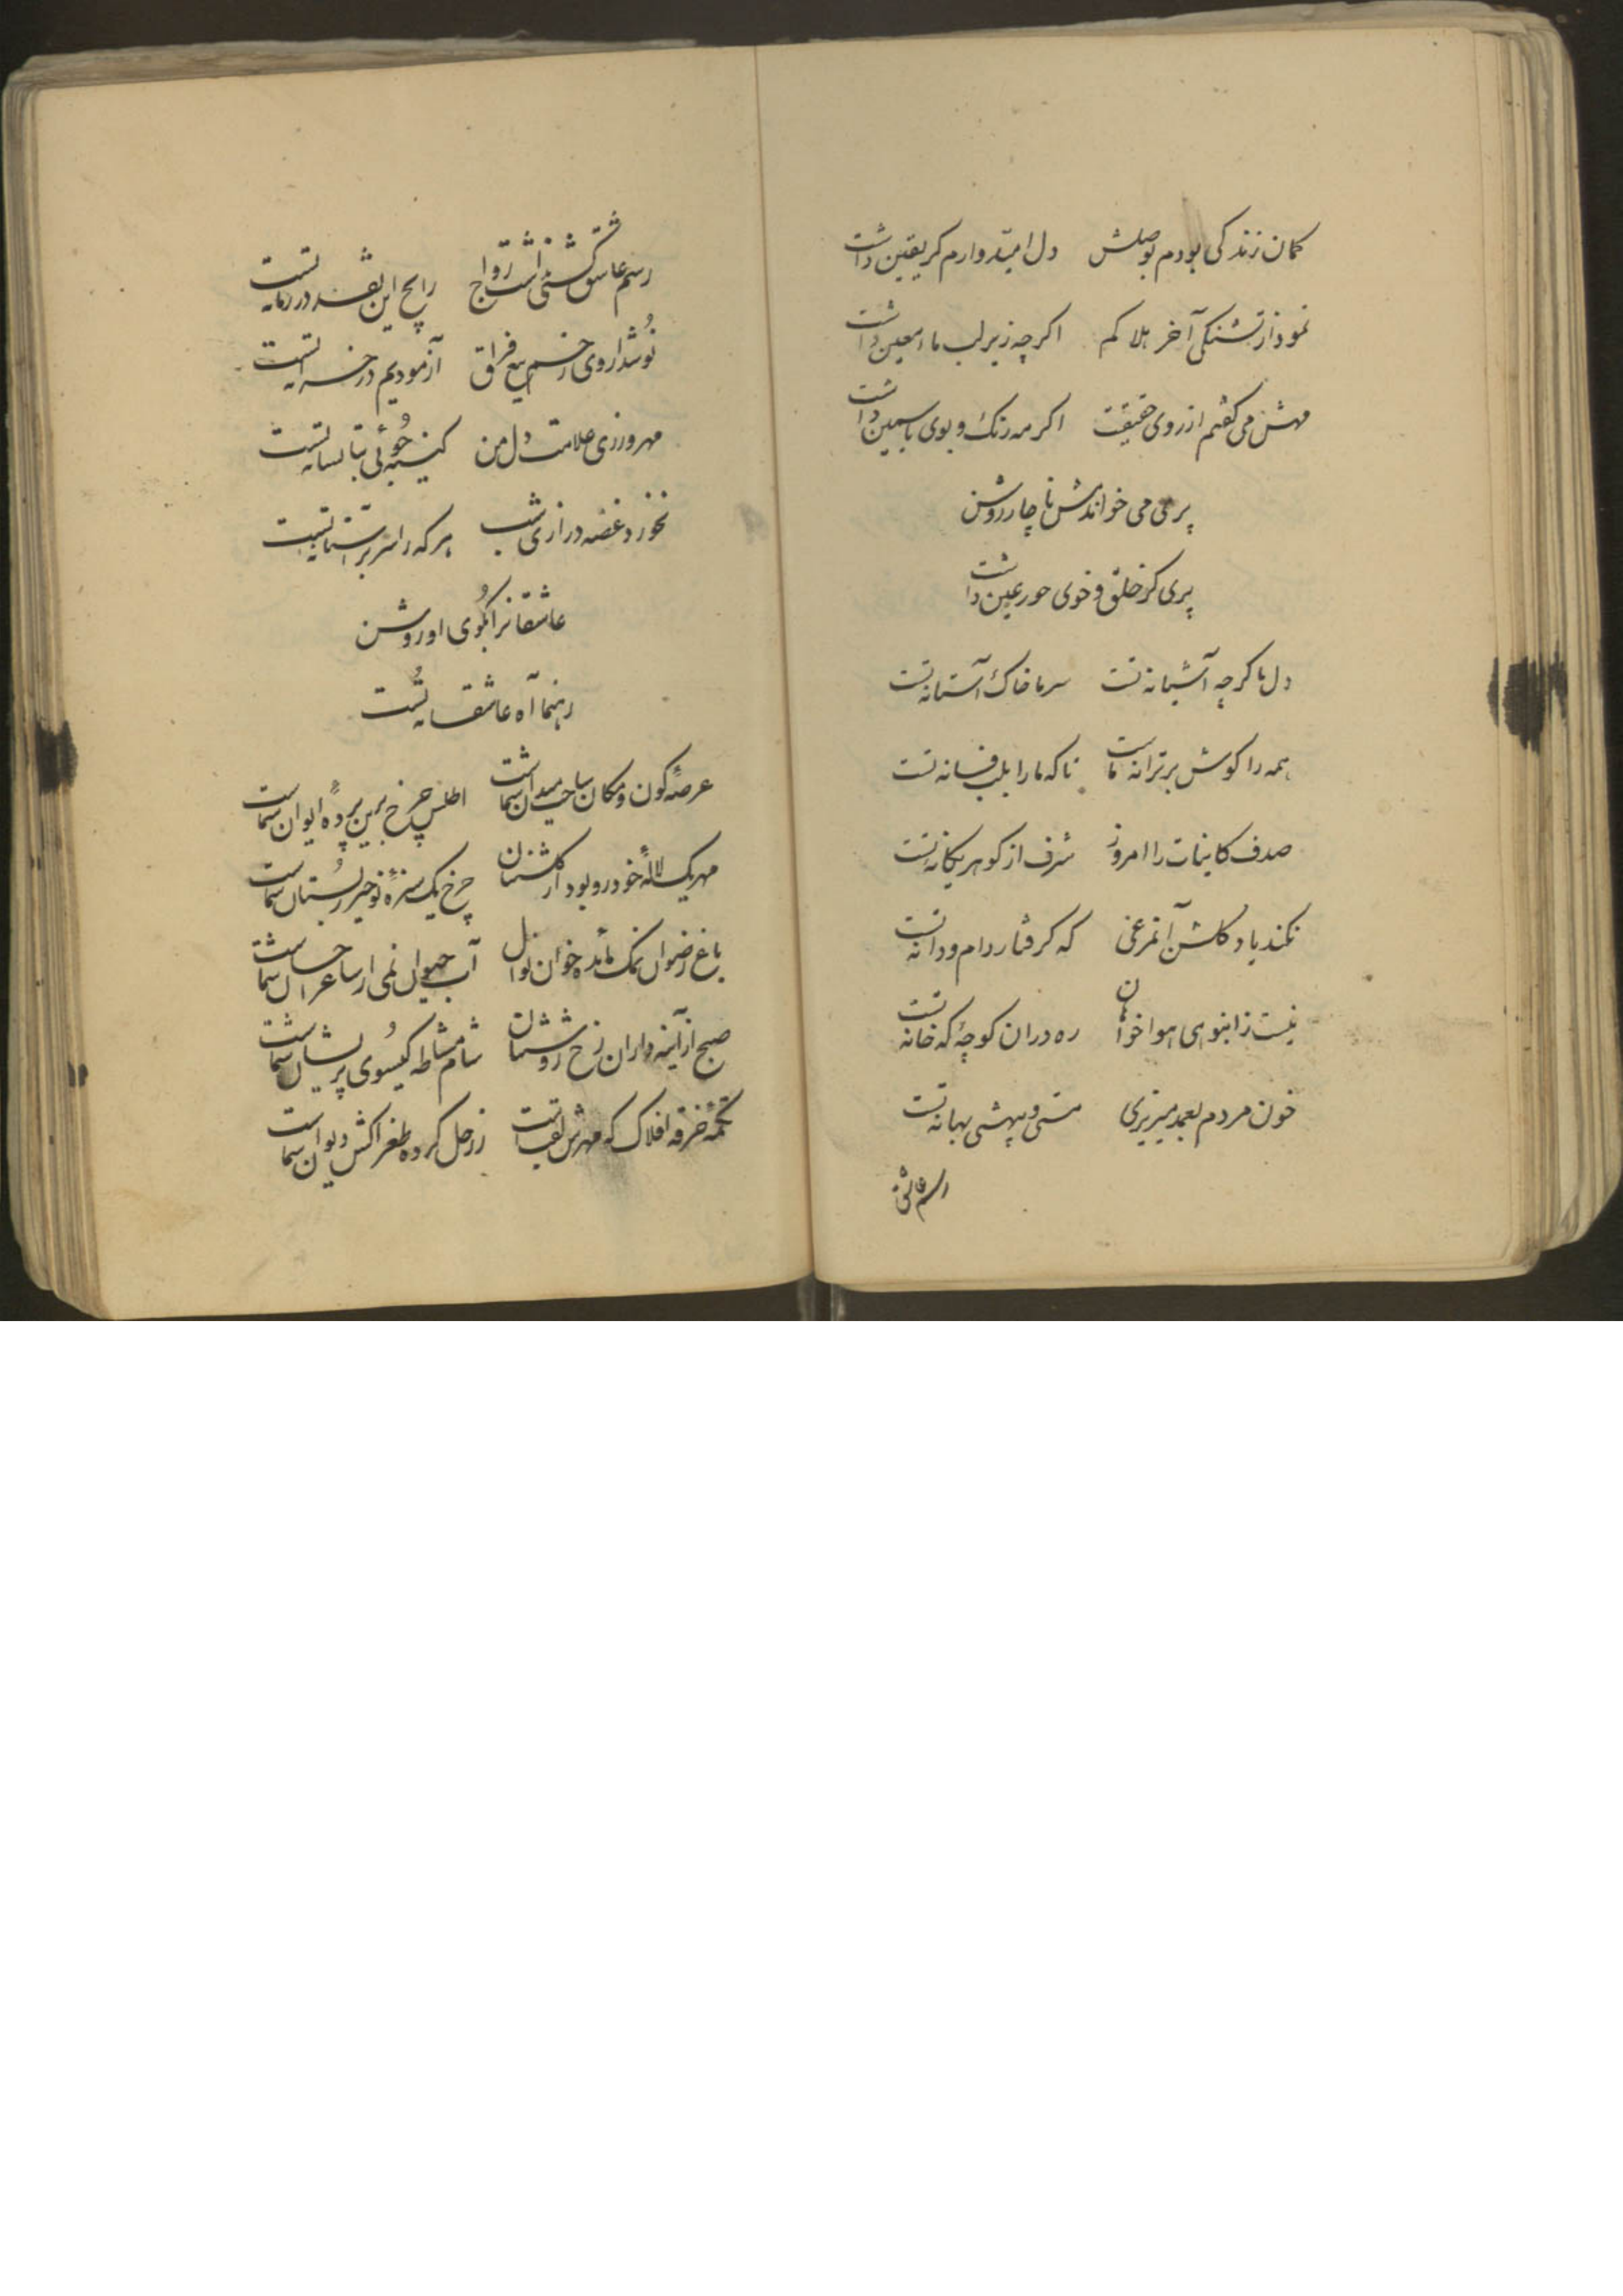 کمان زندگی بودم بوصلش دل امیدوارم کر یقین داشت
نمود از تشنگی آخر هلاکم اکرچه زیر لب ماء معین داشت
مهش می گفتم از روی حقیقت اکر مه رنک و بوی یاسمین داشت
پری می خواندمش ناچار روشن
پری کر خلق و خوی حور عین داشت
دل ما کرچه آشیانه تست سر ما خاک آستانه تست
همه را کوش بر ترانه ماست تا که ما را بلب فسانه تست
صدف کاینات را امروز شرف از کوهر یکانه تست
نکند یاد کلشن آنمرغی که کرفتار دام و دانه تست
نیست ز انبوهی هواخواهان ره در ان کوچهٔ که خانه تست
خون مردم بعمد میریزی مستی و بیهشی بهانه تست
رسم عاشق
رسم عاشق کشی داشت رواج رایج این نقد در زمانه تست
نوشداروی زخم تیغ فراق آزمودیم در خزانه تست
مهرورزی علامت دل من کینه جوئی بتا نشانه تست
نخورد غصه درازی شب هر که را سر بر آستانه تست
عاشقانرا بکوی او روشن
رهنما آه عاشقانه تست
عرصهٔ کون و مکان ساحت میدان شماست اطلس چرخ برین پردهٔ ایوان شماست
مهر یک لالهٔ خودرو بود از کلشنتان چرخ یک سبزهٔ نوخیز ز بستان شماست
باغ رضوان نمک مائده خوان نوال آب حیوان نمی از ساغر احسان شماست
صبح از آینه داران رخ روشنتان شام مشاطه کیسوی پریشان شماست
تکمهٔ خرقه افلاک که مهرش لقبست زر حل کرده طغراکش دیوان شماست